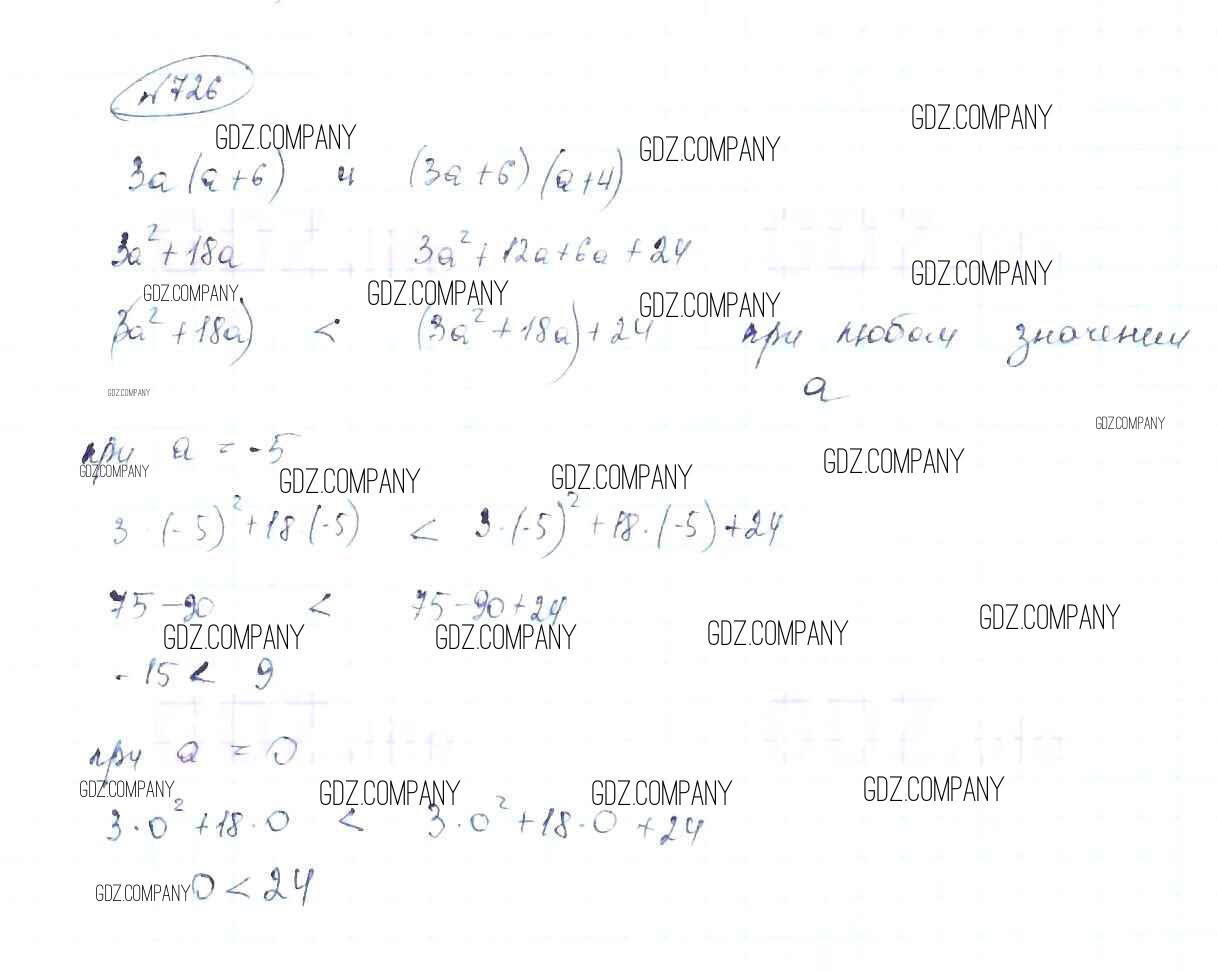 №726
GDZ.COMPANY
GDZ.COMPANY GDZ.COMPANY
3a(a+6) и (3a+6)(a+4)
3a²+18a 3a²+12a+6a+24
GDZ.COMPANY
GDZ.COMPANY GDZ.COMPANY GDZ.COMPANY
(3a²+18a) < (3a²+18a)+24 при любом значении
a
GDZ.COMPANY
GDZ.COMPANY
при a = -5
GDZ.COMPANY GDZ.COMPANY GDZ.COMPANY GDZ.COMPANY
3·(-5)²+18·(-5) < 3·(-5)²+18·(-5)+24
75-90 < 75-90+24
GDZ.COMPANY GDZ.COMPANY GDZ.COMPANY GDZ.COMPANY
-15 < 9
при a = 0
GDZ.COMPANY GDZ.COMPANY GDZ.COMPANY GDZ.COMPANY
3·0²+18·0 < 3·0²+18·0+24
GDZ.COMPANY 0 < 24